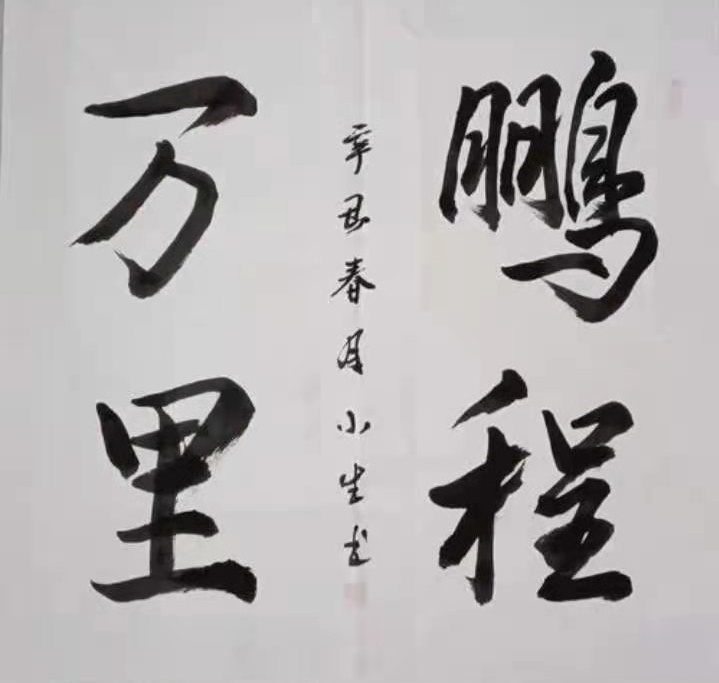 鹏程
万里
辛丑春月小生书